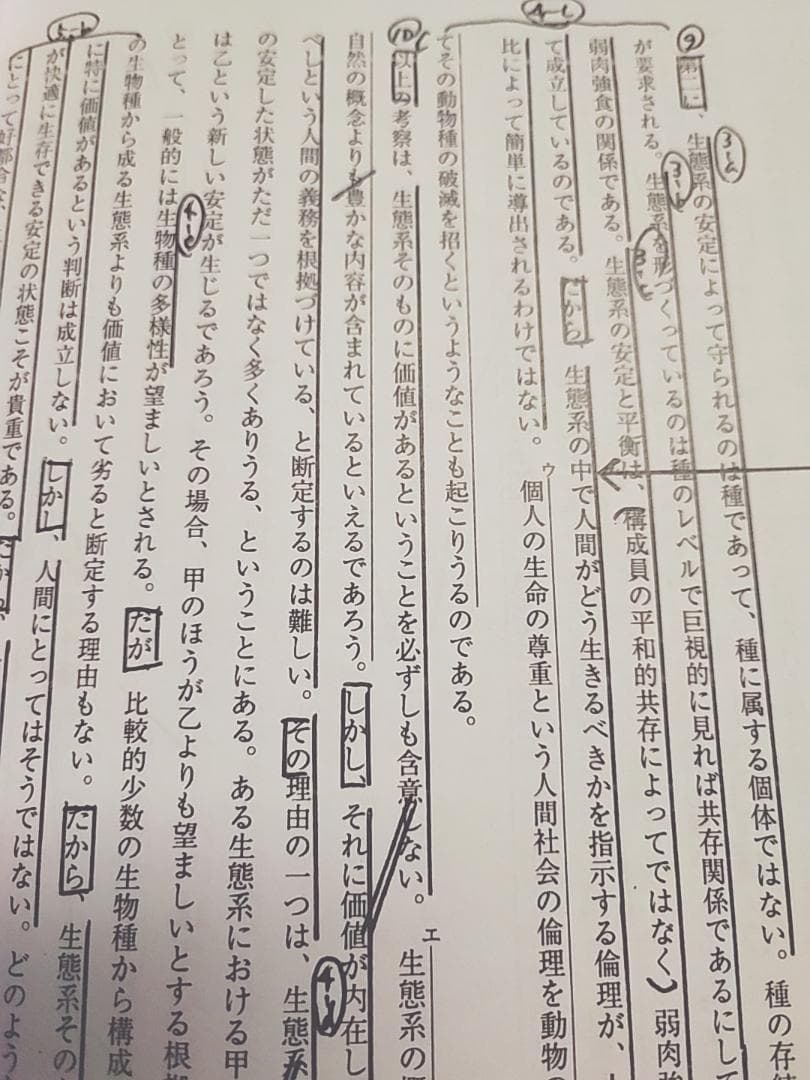 4-c
⑨第二に、生態系の安定によって守られるのは種であって、種に属する個体ではない。種の存続
3-a
が要求される。生態系を形づくっているのは種のレベルで巨視的に見れば共存関係であるにして
3-b
弱肉強食の関係である。生態系の安定と平衡は、構成員の平和的共存によってではなく、弱肉強
3-c
て成立しているのである。だから、生態系の中で人間がどう生きるべきかを指示する倫理が、
比によって簡単に導出されるわけではない。ゥ個人の生命の尊重という人間社会の倫理を動物の
てその動物種の破滅を招くというようなことも起こりうるのである。
⑩以上の考察は、生態系そのものに価値があるということを必ずしも含意しない。ェ生態系の概
自然の概念よりも豊かな内容が含まれているといえるであろう。しかし、それに価値が内在し
べしという人間の義務を根拠づけている、と断定するのは難しい。その理由の一つは、生態系
4-a
の安定した状態がただ一つではなく多くありうる、ということにある。ある生態系における甲
は乙という新しい安定が生じるであろう。その場合、甲のほうが乙よりも望ましいとする根拠
とって、一般的には生物種の多様性が望ましいとされる。だが、比較的少数の生物種から構成
の生物種から成る生態系よりも価値において劣ると断定する理由もない。だから、生態系その
5-b
に特に価値があるという判断は成立しない。しかし、人間にとってはそうではない。どのよう
が快適に生存できる安定の状態こそが貴重である。
にとって好都合な、